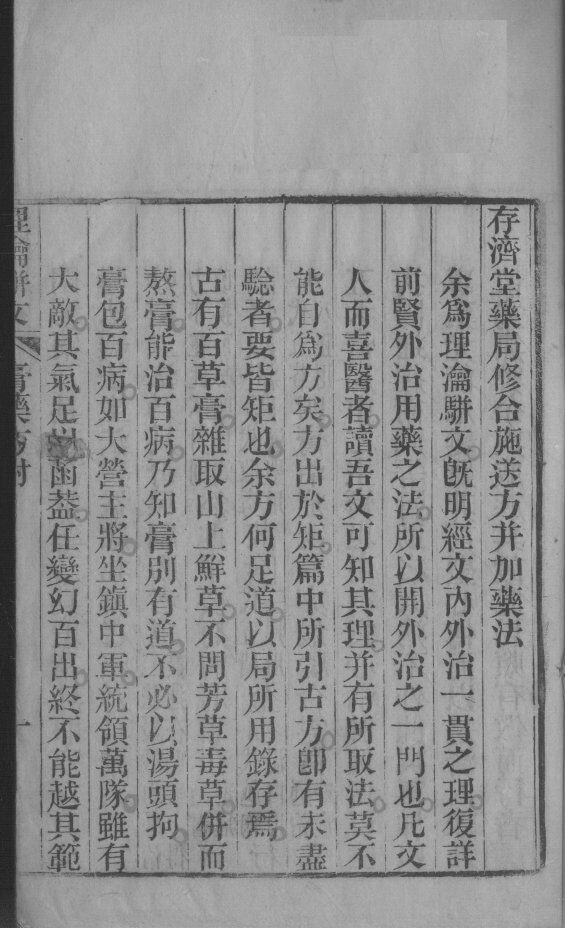 存濟堂藥局修合施送方并加藥法
余爲理瀹駢文旣明經文內外治一貫之理復詳
前賢外治用藥之法所以開外治之一門也凡文
人而喜醫者讀吾文可知其理并有所取法莫不
能自爲方矣方出於矩篇中所引古方卽有未盡
騐者要皆矩也余方何足道以局所用錄存焉
古有百草膏雜取山上鮮草不問芳草毒草併而
熬膏能治百病乃知膏別有道不必以湯頭拘
膏包百病如大營主將坐鎭中軍統領萬隊雖有
大敵其氣足以函葢任變幻百出終不能越其範
理瀹駢文 膏藥方附 一